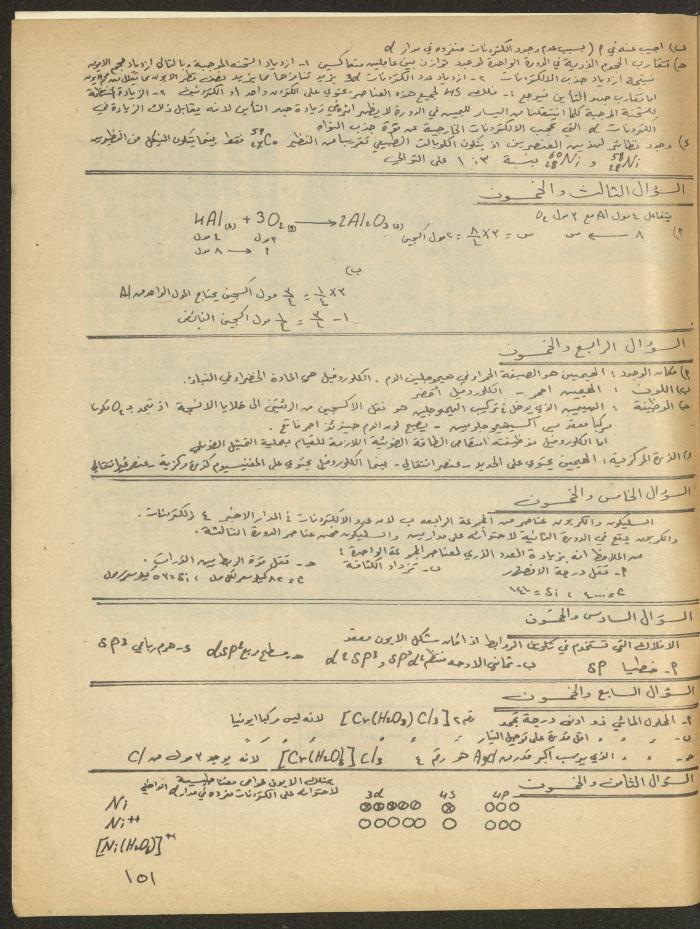 ب) اجيب عنه في P ( بسبب عدم وجود الكترونات منفرده في مدار d
حـ) تتقارب الحجوم الذرية في الدورة الواحدة لوجود توازن بين عاملين متعاكسين ١- ازدياد الشحنه الموجبة وبالتالي ازدياد
نتيجة ازدياد جذب الالكترونات ٢- ازدياد عدد الكترونات 3d يزيد تنافرها مما يزيد نصف قطر الايون
اما تقارب جهد التأين فيرجع ١- فلك 4S لجميع هذه العناصر يحتوي على الكترون واحد أو الكترونين ٢- الزيادة
للشحنة الموجبة كلما انتقلنا من اليسار لليمين في الدورة لا يظهر اثره في زيادة جهد التأين لانه يقابل ذلك الزيادة في
الكترونات d التي تحجب الالكترونات الخارجية عن قوة جذب النواه
د) وجود نظائر لهذين العنصرين اذ يتكون الكوبالت الطبيعي تقريبا من النظير ⁵⁹Co فقط بينما يتكون النيكل من النظيرين
⁵⁸₂₈Ni و ⁶⁰₂₈Ni بنسبة ٣ : ١ على التوالي
السؤال الثالث والخمسون
يتفاعل ٤ مول Al مع ٣ مول O₂
4Al(s) + 3O₂(g) ⟶ 2Al₂O₃(s)
٤ مول ٣ مول
٨ مول ← ؟
P) ٨ ← س س = ٣ × ٨/٤ = ٦ مول اكسجين
ب)
٣ × ١/٤ = ٣/٤ مول اكسجين يحتاج المول الواحد من Al
١ - ٣/٤ = ١/٤ مول اكسجين الفائض
السؤال الرابع والخمسون
P) مكان الوجود : الهيمين هو الصبغة الحمراء في هيموجلبين الدم . الكلوروفيل هي المادة الخضراء في النبات
ب) اللون : الهيمين احمر - الكلوروفيل أخضر
حـ) الوظيفة : الهيمين الذي يدخل في تركيب الهيموجلبين هو نقل الاكسجين من الرئتين الى خلايا الانسجة اذ يتحد بـ O₂ مكونا
مركبا معقد هو اكسيهيموجلوبين - يصبح لون الدم حينئذ احمر فاتح .
اما الكلوروفيل فوظيفته امتصاص الطاقة الضوئية اللازمة للقيام بعملية التمثيل الضوئي
د) الذرة المركزية : الهيمين يحتوي على الحديد - عنصر انتقالي - بينما الكلوروفيل يحتوي على المغنيسيوم كذرة مركزية - عنصر غير انتقالي
السؤال الخامس والخمسون
السليكون والكربون عناصر من المجموعة الرابعه ب لان عدد الالكترونات في المدار الاخير ٤ الكترونات .
والكربون يقع في الدورة الثانية لاحتوائه على مدارين والسليكون ضمن عناصر الدورة الثالثة .
من الملاحظ انه بزيادة العدد الذري لعناصر المجموعة الواحدة :
P- تقل درجة الانصهار ب- تزداد الكثافة حـ- تقل قوة الربط بين الذرات .
السؤال السادس والخمسون
الافلاك التي تستخدم في تكوين الروابط اذا كان شكل الايون معقد
P- خطيا SP ب- ثماني الاوجه منتظم d²SP³ و SP³d² حـ- مسطح مربع dSP² د- هرم رباعي SP³
السؤال السابع والخمسون
P- المحلول المائي ذو ادنى درجة تجمد رقم ٢ [Cr(H₂O₃)Cl₃] لانه ليس مركبا ايونيا
ب- " " اقل قدرة على توصيل التيار " " " " "
حـ- " " الذي يرسب اكبر قدر من AgCl هو رقم ٤ [Cr(H₂O)₆]Cl₃ لانه يوجد ٣ مولات من Cl
السؤال الثامن والخمسون
يمتلك الايون خواص مغناطيسية
لاحتوائه على الكترونات منفرده في مدار d الداخلي
3d 4S 4P
Ni
Ni⁺⁺
[Ni(H₂O)₆]⁺⁺
١٥١